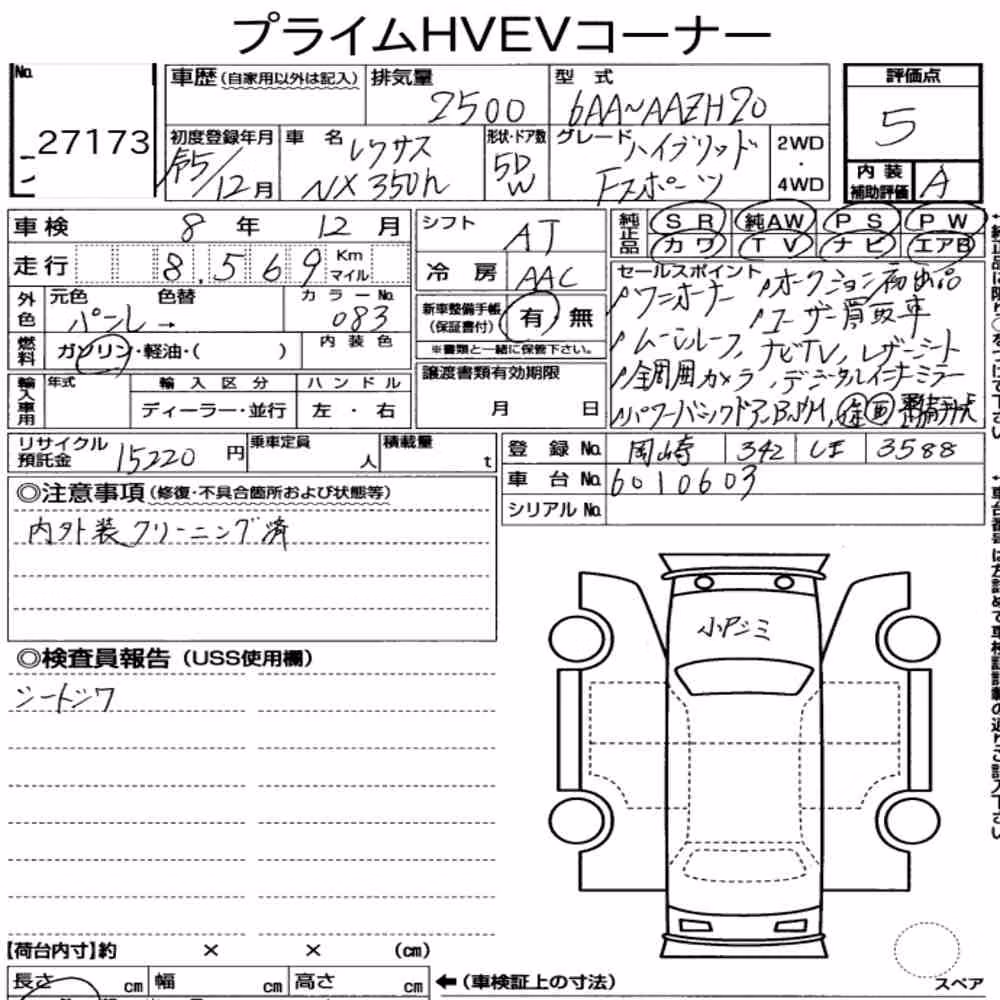 プライムHVEVコーナー
No. 27173
車歴(自家用以外は記入)
排気量 2500
型式 6AA〜AAZH20
評価点 5
初度登録年月 R5/12月
車名 レクサス NX350h
形状・ドア数 5D W
グレード ハイブリッド Fスポーツ
2WD・4WD
内装補助評価 A
車検 8年 12月
シフト AT
純正品 SR 純AW PS PW
カワ TV ナビ エアB
走行 8,569 Km マイル
冷房 AAC
セールスポイント
ワンオーナー オークション初出品
ユーザー買取車
ムーンルーフ、ナビTV、レザーシート
全周囲カメラ、デジタルインナーミラー
パワーバックドア、BSM、
外色 元色 パール→ 色替
カラーNo. 083
新車整備手帳(保証書付) 有 無
※書類と一緒に保管下さい。
燃料 ガソリン・軽油・( )
内装色
輸入車用 年式
輸入区分 ディーラー・並行
ハンドル 左・右
譲渡書類有効期限 月 日
リサイクル預託金 15220円
乗車定員 人
積載量 t
登録No. 岡崎 342 3588
車台No. 6010603
シリアルNo.
◎注意事項(修復・不具合箇所および状態等)
内外装クリーニング済
小Pシミ
◎検査員報告(USS使用欄)
シートシワ
【荷台内寸】約 × × (cm)
長さ cm 幅 cm 高さ cm
←(車検証上の寸法)
スペア